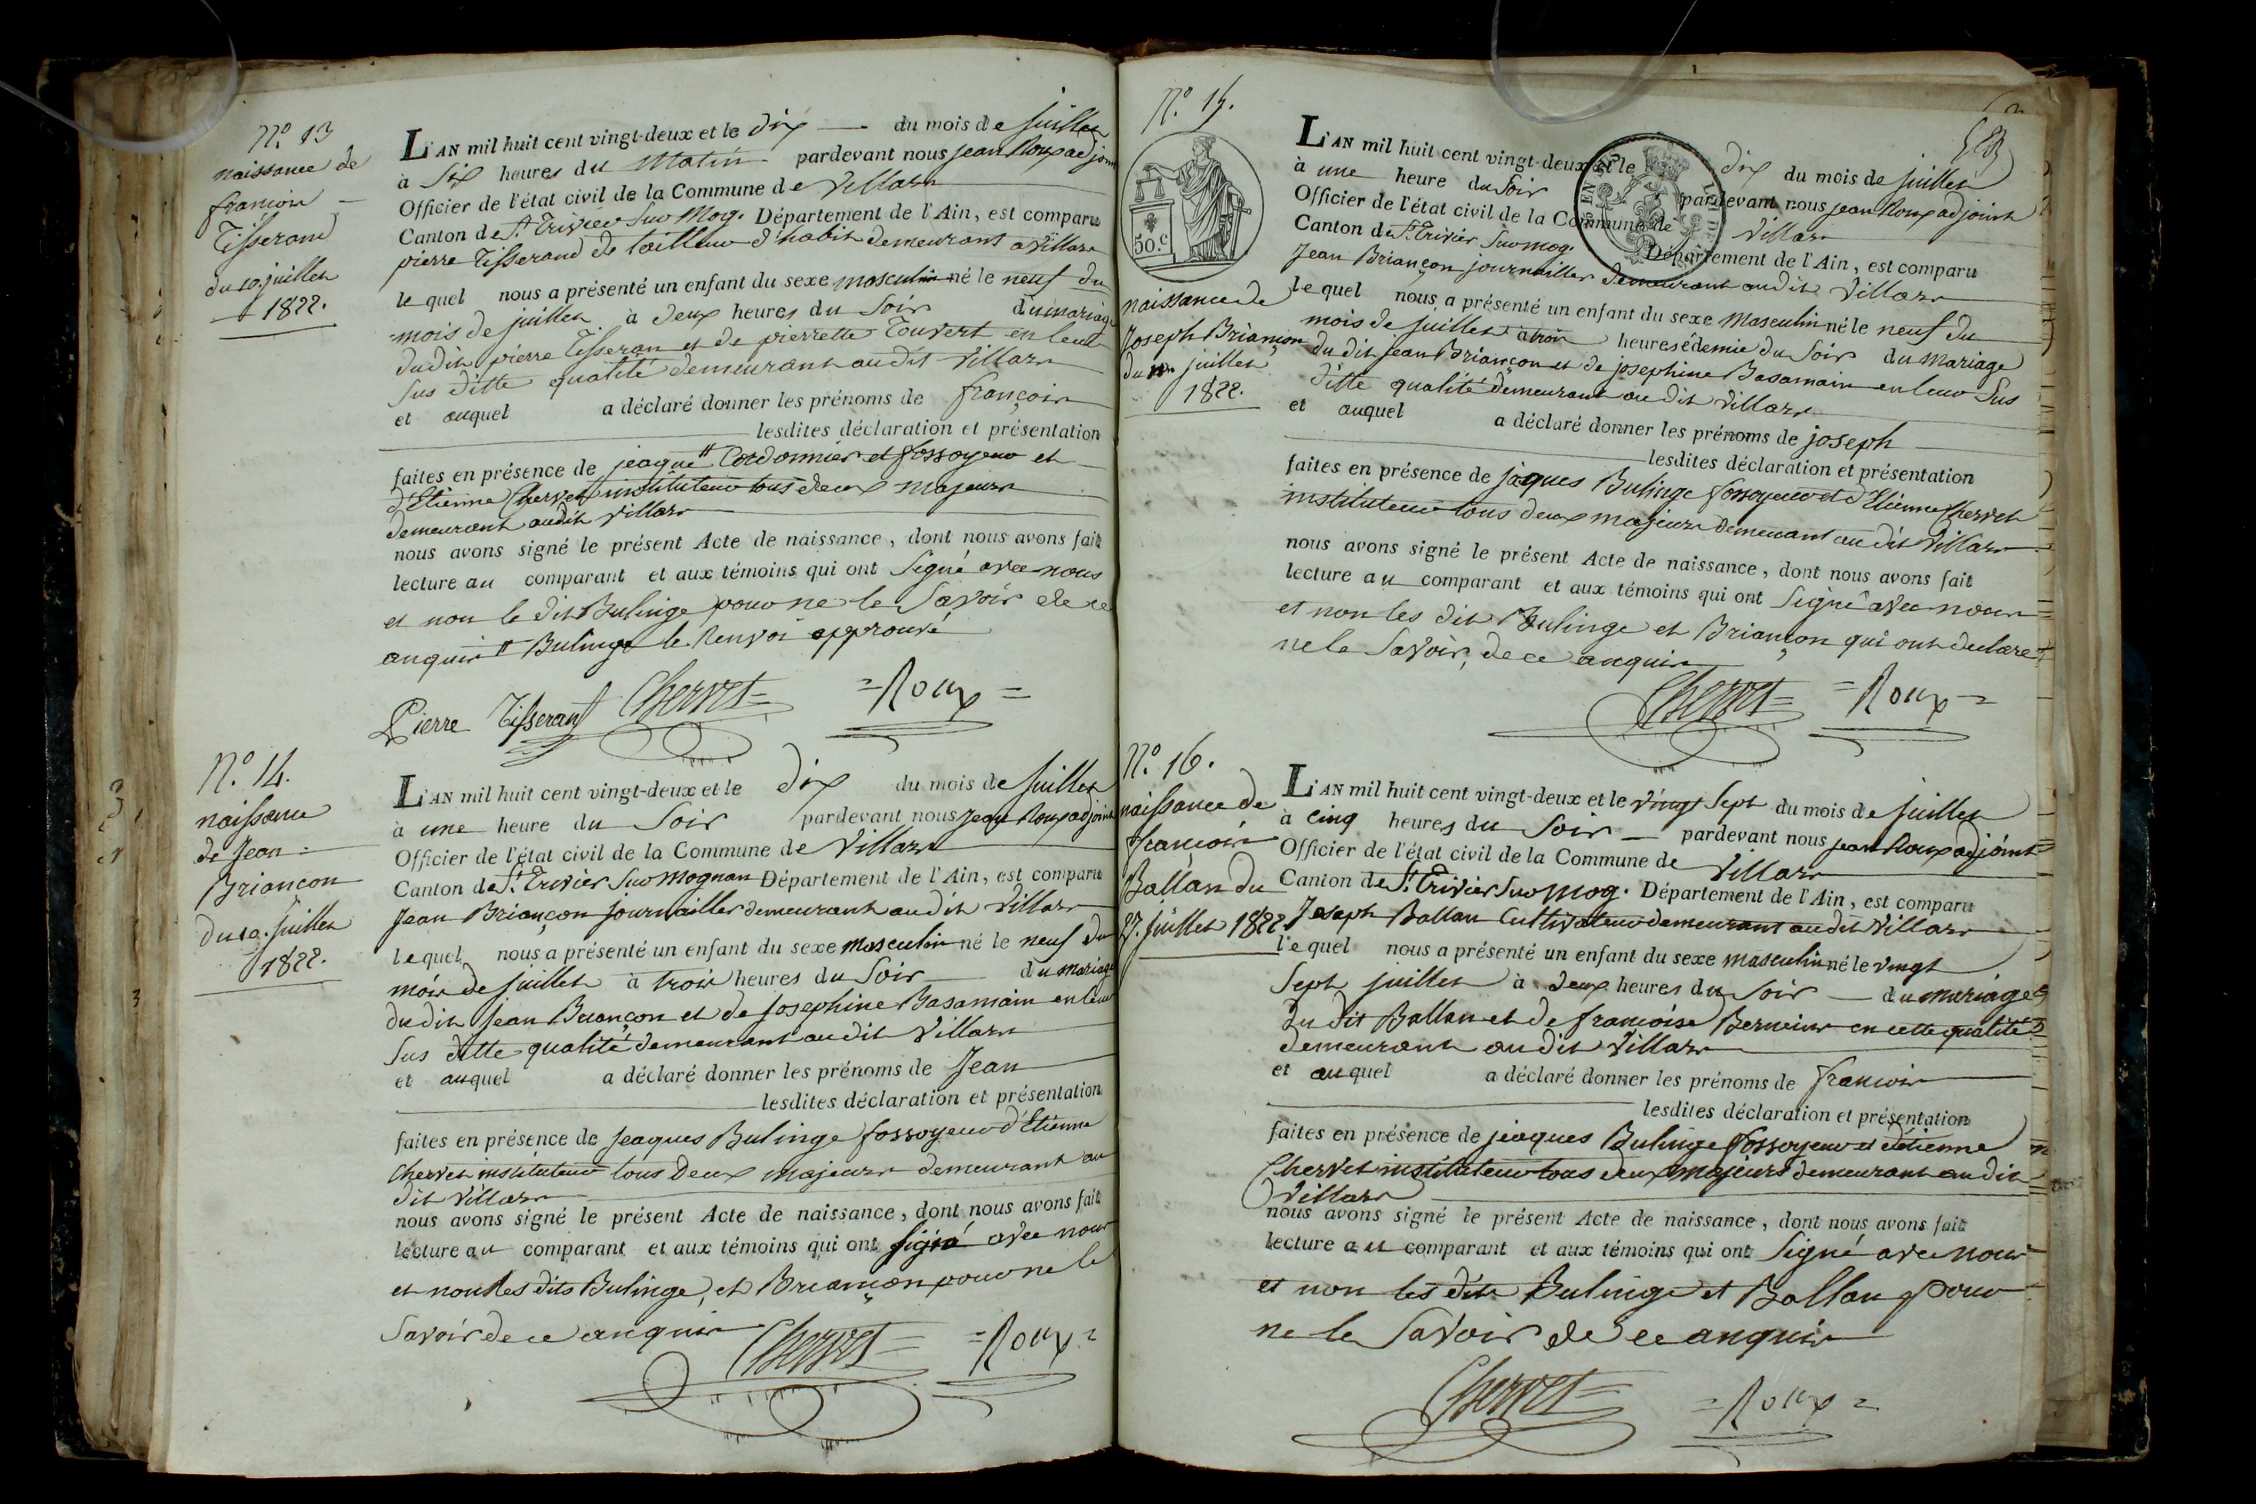 N.º 13
naissance de
françois
Tisserand
du 10. juillet
1822.
L'AN mil huit cent vingt-deux et le dix du mois de juillet
à six heures du matin pardevant nous jean Roux adjoint
Officier de l'état civil de la Commune de Villars
Canton de St. Trivier sur Mog. Département de l'Ain, est comparu
pierre Tisserand de tailleur d'habit demeurant a Villars
lequel nous a présenté un enfant du sexe masculin né le neuf du
mois de juillet à deux heures du soir du mariage
dudit pierre Tisseran et de pierrette Touvert en leur
sus ditte qualité demeurant audit Villars
et auquel a déclaré donner les prénoms de françois
lesdites déclaration et présentation
faites en présence de jeaque # Cordonnier et fossoyeur et
d'Etienne Chervet instituteur tous deux majeurs
demeurant audit Villars
nous avons signé le présent Acte de naissance, dont nous avons fait
lecture au comparant et aux témoins qui ont signé avec nous
et non le dit Bulinge pour ne le savoir de ce
anquis # Bulinge le renvoi approuvé
Pierre Tisserant Chervet = Roux =
N.º 14.
naissance
de Jean
Briançon
du 10. juillet
1822.
L'AN mil huit cent vingt-deux et le dix du mois de juillet
à une heure du soir pardevant nous jean Roux adjoint
Officier de l'état civil de la Commune de Villars
Canton de St. Trivier sur Mognan Département de l'Ain, est comparu
Jean Briançon journallier demeurant audit Villars
lequel nous a présenté un enfant du sexe masculin né le neuf du
mois de juillet à trois heures du soir du mariage
dudit Jean Briançon et de Josephine Basamain en leur
sus ditte qualité demeurant audit Villars
et auquel a déclaré donner les prénoms de Jean
lesdites déclaration et présentation
faites en présence de jeaques Bulinge fossoyeur d'Etienne
Chervet instituteur tous deux majeurs demeurant au
dit Villars
nous avons signé le présent Acte de naissance, dont nous avons fait
lecture au comparant et aux témoins qui ont signé avec nous
et non les dits Bulinge, et Briançon pour ne le
savoir de ce anquis Chervet = Roux =
N.º 15.
50.c
naissance de
Joseph Briançon
du 10 juillet
1822.
L'AN mil huit cent vingt-deux et le dix du mois de juillet
à une heure du soir pardevant nous jean Roux adjoint
Officier de l'état civil de la Commune de Villars
Canton de St. Trivier sur mog. Département de l'Ain, est comparu
Jean Briançon journallier demeurant audit Villars
lequel nous a présenté un enfant du sexe masculin né le neuf du
mois de juillet à trois heures é demie du soir du mariage
du dit Jean Briançon et de josephine Basamain en leur sus
ditte qualité demeurant au dit Villars
et auquel a déclaré donner les prénoms de joseph
lesdites déclaration et présentation
faites en présence de jaques Bulinge fossoyeur et d'Etienne Chervet
instituteur tous deux majeurs demeurant au dit Villars
nous avons signé le présent Acte de naissance, dont nous avons fait
lecture au comparant et aux témoins qui ont signé avec nous
et non les dit Bulinge et Briançon qui ont declaré
ne le savoir, de ce anquis
Chervet = Roux =
N.º 16.
naissance de
françois
Ballan du
27. juillet 1822
L'AN mil huit cent vingt-deux et le vingt sept du mois de juillet
à cinq heures du soir pardevant nous jean Roux adjoint
Officier de l'état civil de la Commune de Villars
Canton de St. Trivier sur mog. Département de l'Ain, est comparu
Joseph Ballan Cultivateur demeurant audit Villars
lequel nous a présenté un enfant du sexe masculin né le vingt
sept juillet à deux heures du soir du mariage
du dit Ballan et de francoise en cette qualité
demeurant au dit Villars
et auquel a déclaré donner les prénoms de francois
lesdites déclaration et présentation
faites en présence de jeaques Bulinge fossoyeur et détienne
Chervet instituteur tous deux majeurs demeurant audit
Villars
nous avons signé le présent Acte de naissance, dont nous avons fait
lecture au comparant et aux témoins qui ont signé avec nous
et non les dits Bulinge et Ballan pour
ne le savoir de ce anquis
Chervet = Roux =